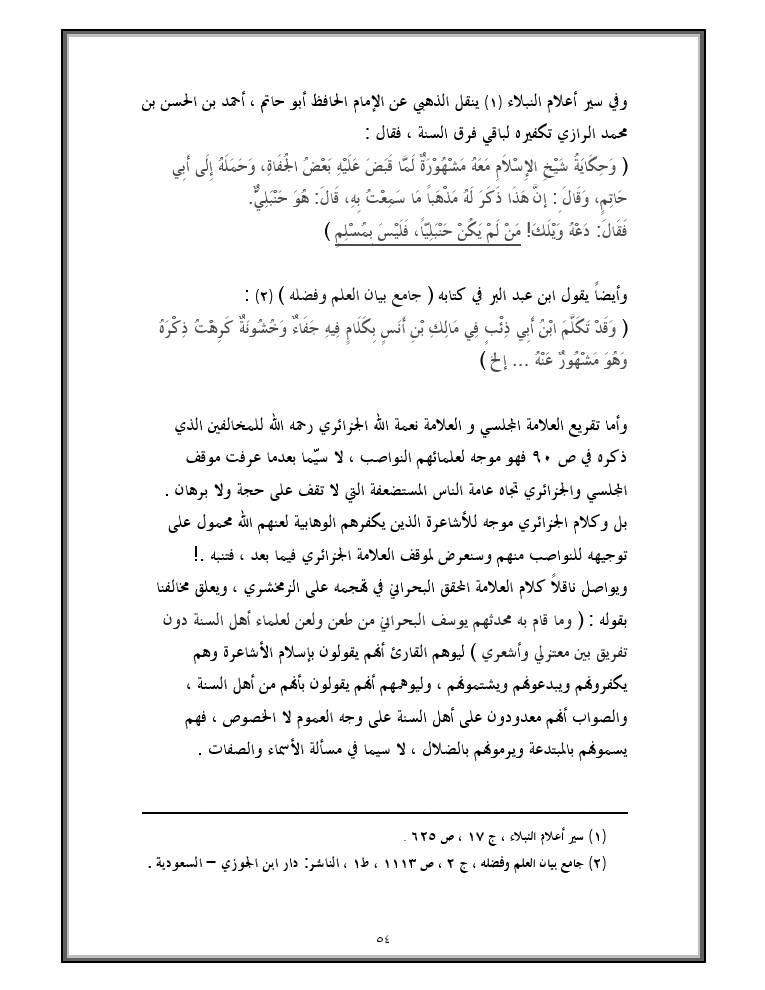 وفي سير أعلام النبلاء (١) ينقل الذهبي عن الإمام الحافظ أبو حاتم ، أحمد بن الحسن بن
محمد الرازي تكفيره لباقي فرق السنة ، فقال :
( وَحِكَايَةُ شَيْخِ الإِسْلَامِ مَعَهُ مَشْهُوْرَةٌ لَمَّا قَبَضَ عَلَيْهِ بَعْضُ الجُفَاةِ، وَحَمَلَهُ إِلَى أَبِي
حَاتِمٍ، وَقَالَ : إِنَّ هَذَا ذَكَرَ لَهُ مَذْهَباً مَا سَمِعْتُ بِهِ، قَالَ: هُوَ حَنْبَلِيٌّ.
فَقَالَ: دَعْهُ وَيْلَكَ! مَنْ لَمْ يَكُنْ حَنْبَلِيّاً، فَلَيْسَ بِمُسْلِمٍ )
وأيضاً يقول ابن عبد البر في كتابه ( جامع بيان العلم وفضله ) (٢) :
( وَقَدْ تَكَلَّمَ ابْنُ أَبِي ذِئْبٍ فِي مَالِكِ بْنِ أَنَسٍ بِكَلَامٍ فِيهِ جَفَاءٌ وَخُشُونَةٌ كَرِهْتُ ذِكْرَهُ
وَهُوَ مَشْهُورٌ عَنْهُ ... إلخ )
وأما تقريع العلامة المجلسي و العلامة نعمة الله الجزائري رحمه الله للمخالفين الذي
ذكره في ص ٩٠ فهو موجه لعلمائهم النواصب ، لا سيّما بعدما عرفت موقف
المجلسي والجزائري تجاه عامة الناس المستضعفة التي لا تقف على حجة ولا برهان .
بل وكلام الجزائري موجه للأشاعرة الذين يكفرهم الوهابية لعنهم الله محمول على
توجيهه للنواصب منهم وسنعرض لموقف العلامة الجزائري فيما بعد ، فتنبه .!
ويواصل ناقلاً كلام العلامة المحقق البحراني في تهجمه على الزمخشري ، ويعلق مخالفنا
بقوله : ( وما قام به محدثهم يوسف البحراني من طعن ولعن لعلماء أهل السنة دون
تفريق بين معتزلي وأشعري ) ليوهم القارئ أنهم يقولون بإسلام الأشاعرة وهم
يكفرونهم ويبدعونهم ويشتمونهم ، وليوهمهم أنهم يقولون بأنهم من أهل السنة ،
والصواب أنهم معدودون على أهل السنة على وجه العموم لا الخصوص ، فهم
يسمونهم بالمبتدعة ويرمونهم بالضلال ، لا سيما في مسألة الأسماء والصفات .
(١) سير أعلام النبلاء ، ج ١٧ ، ص ٦٢٥ .
(٢) جامع بيان العلم وفضله ، ج ٢ ، ص ١١١٣ ، ط١ ، الناشر: دار ابن الجوزي – السعودية .
٥٤